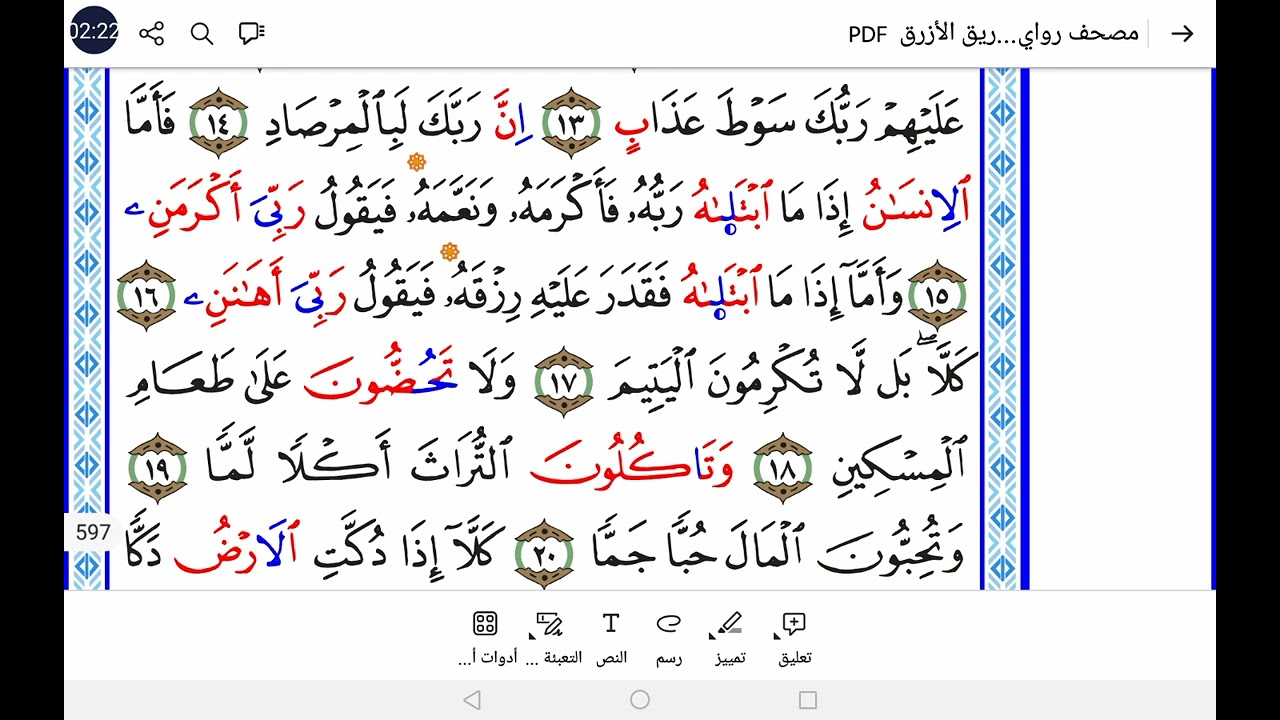 02:22
مصحف رواي...ريق الأزرق PDF
عَلَيْهِمْ رَبُّكَ سَوْطَ عَذَابٍ ١٣ اِنَّ رَبَّكَ لَبِالْمِرْصَادِ ١٤ فَأَمَّا
اَ۬لِانسَٰنُ إِذَا مَا اَ۪بْتَل۪يٰهُ رَبُّهُۥ فَأَكْرَمَهُۥ وَنَعَّمَهُۥ فَيَقُولُ رَبِّيَ أَكْرَمَنِے
١٥ وَأَمَّآ إِذَا مَا اَ۪بْتَل۪يٰهُ فَقَدَرَ عَلَيْهِ رِزْقَهُۥ فَيَقُولُ رَبِّيَ أَهَٰنَنِے ١٦
كَلَّاۖ بَل لَّا تُكْرِمُونَ اَ۬لْيَتِيمَ ١٧ وَلَا تَحُضُّونَ عَلَىٰ طَعَامِ
اِ۬لْمِسْكِينِ ١٨ وَتَاكُلُونَ اَ۬لتُّرَاثَ أَكْلًا لَّمًّا ١٩
وَتُحِبُّونَ اَ۬لْمَالَ حُبًّا جَمًّا ٢٠ كَلَّآ إِذَا دُكَّتِ اِ۬لَارْضُ دَكًّا
597
تعليق تمييز رسم النص التعبئة ... أدوات أ...